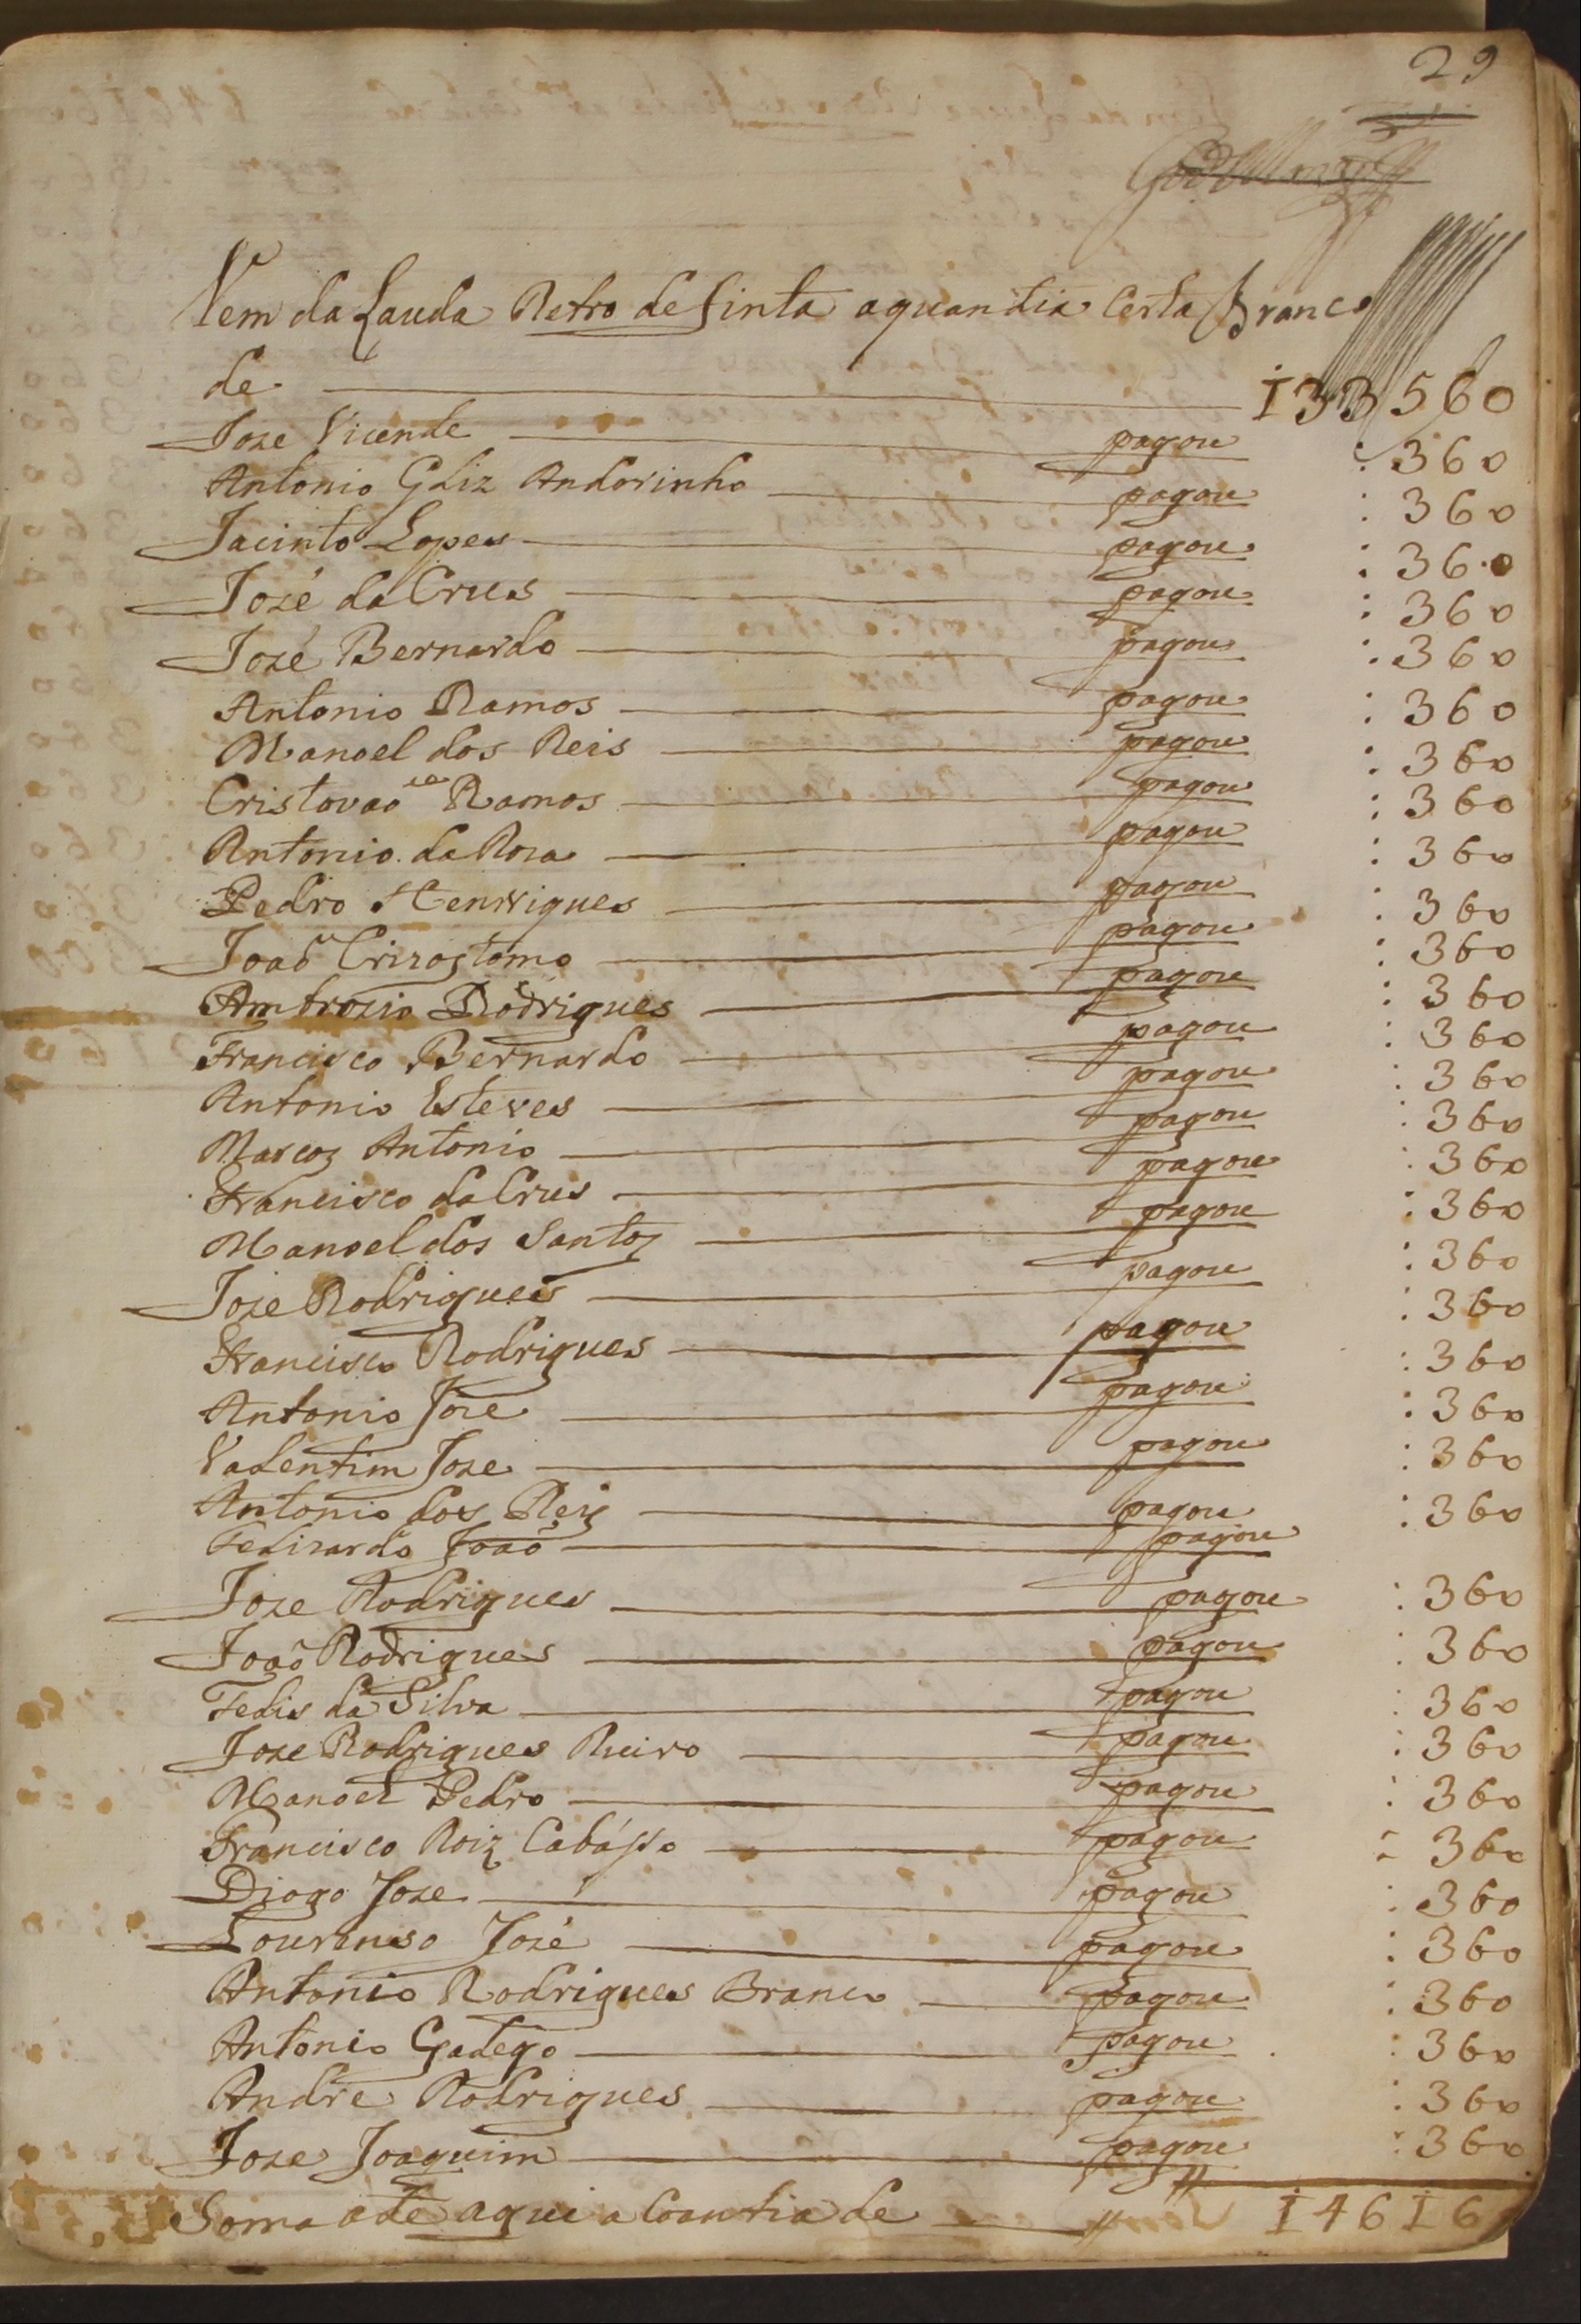 29
Vem da Lauda Retro de finta aquandia Certa Branco
de 133560
Joze Vicende pagou : 360
Antonio Gliz Andorinho pagou : 360
Jacinto Lopes pagou : 360
José da Crus pagou : 360
José Bernardo pagou : 360
Antonio Ramos pagou : 360
Manoel dos Reis pagou : 360
Cristovaõ Ramos pagou : 360
Antonio da Roza pagou : 360
Pedro Henrriques pagou : 360
Joaõ Crizostomo pagou : 360
Ambrozio Rodrigues pagou : 360
Francisco Bernardo pagou : 360
Antonio Esteves pagou : 360
Marcos Antonio pagou : 360
Francisco da Crus pagou : 360
Manoel dos Santos pagou : 360
Joze Rodrigues pagou : 360
Francisco Rodrigues pagou : 360
Antonio Joze pagou : 360
Valentim Joze pagou : 360
Antonio dos Reis pagou : 360
Felizardo Joaõ pagou
Joze Rodrigues pagou : 360
Joaõ Rodrigues pagou : 360
Felis da Silva pagou : 360
Joze Rodrigues Ruivo pagou : 360
Manoel Pedro pagou : 360
Francisco Roiz Cabásso pagou : 360
Diogo Joze pagou : 360
Lourenso José pagou : 360
Antonio Rodrigues Branco pagou : 360
Antonio Galego pagou : 360
Andre Rodrigues pagou : 360
Joze Joaquim pagou : 360
Soma ate aqui a Coantia de 14616